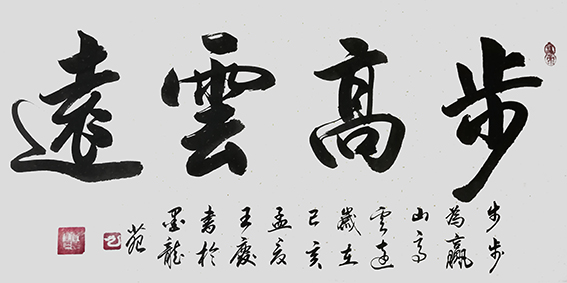 步高雲遠
步步
為贏
山高
雲遠
歲在
己亥
孟夏
王慶
書於
墨龍
苑